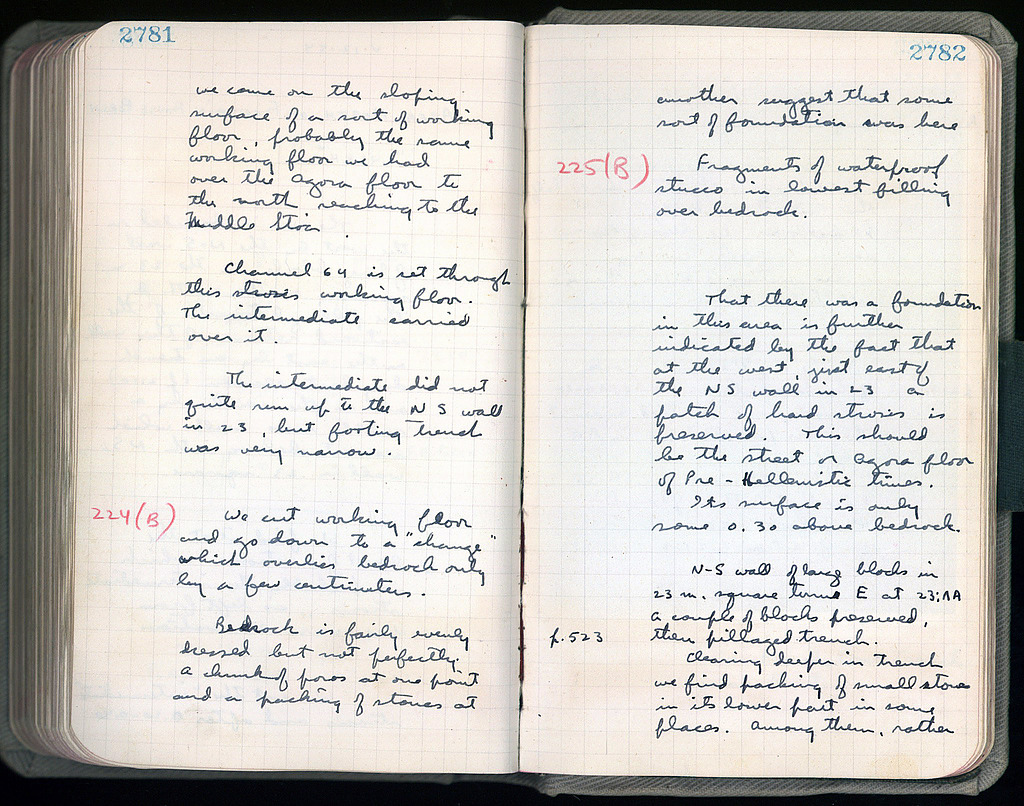 2781
we came on the sloping
surface of a sort of working
floor, probably the same
working floor we had
over the agora floor to
the north reaching to the
Middle Stoa.
Channel 64 is set through
this strosis working floor.
The intermediate carried
over it.
The intermediate did not
quite run up to the N S wall
in 23, but footing trench
was very narrow.
224(B)
We cut working floor
and go down to a "change"
which overlies bedrock only
by a few centimeters.
Bedrock is fairly evenly
dressed but not perfectly.
a chunk of poros at one point
and a packing of stones at
2782
another suggest that some
sort of foundation was here
225(B)
Fragments of waterproof
stucco in lowest filling
over bedrock.
That there was a foundation
in this area is further
indicated by the fact that
at the west, just east of
the NS wall in 23 a
patch of hard strosis is
preserved. This should
be the street or agora floor
of Pre-Hellenistic times.
Its surface is only
some 0.30 above bedrock.
N-S wall of large blocks in
23 m. square turns E at 23:ΛΑ
a couple of blocks preserved,
then pillaged trench.
p.523
Clearing deeper in trench
we find packing of small stones
in its lower part in some
places. Among them, rather